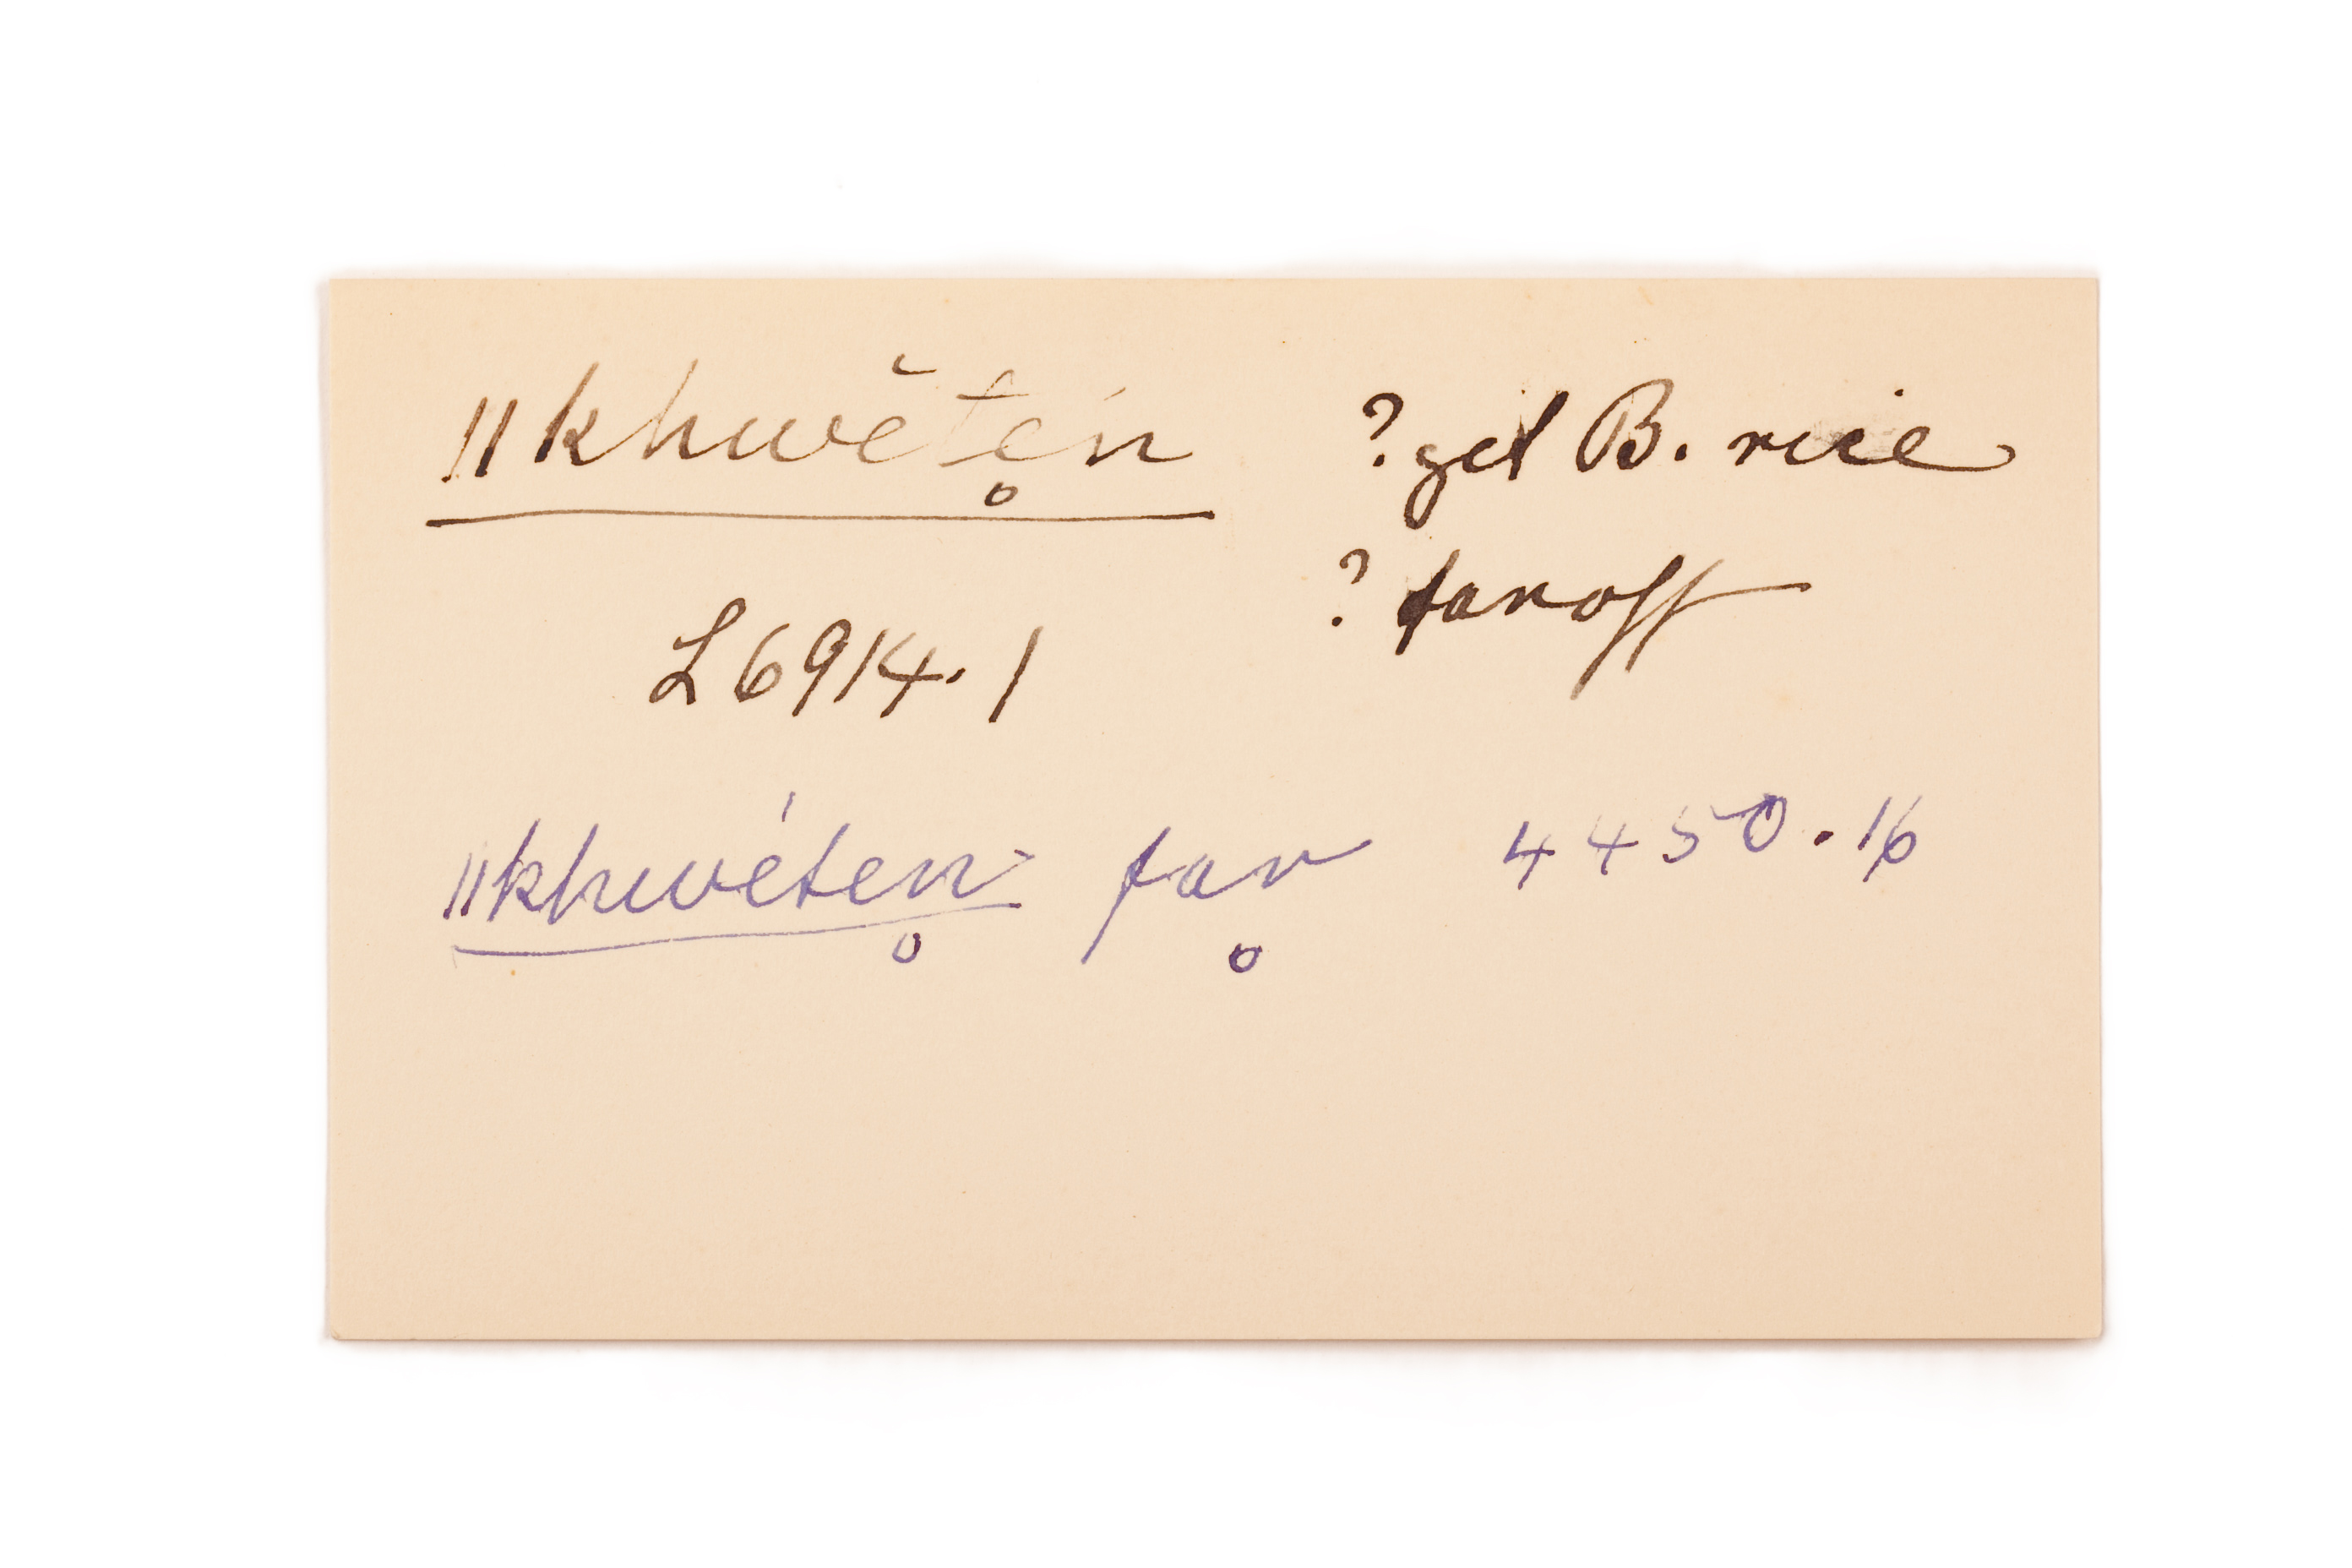 ǁkhwĕte̥n ? get B. rice
? far off
L 6914.1
ǁkhwéte̥n fḁr 4450.16